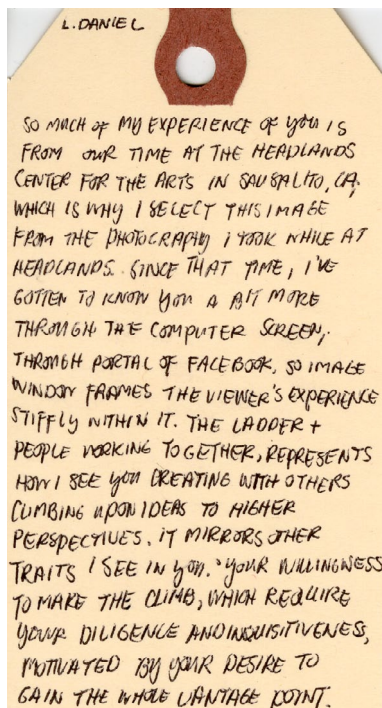 L. DANIEL
SO MUCH OF MY EXPERIENCE OF YOU IS
FROM OUR TIME AT THE HEADLANDS
CENTER FOR THE ARTS IN SAUSALITO, CA,
WHICH IS WHY I SELECT THIS IMAGE
FROM THE PHOTOGRAPHY I TOOK WHILE AT
HEADLANDS. SINCE THAT TIME, I'VE
GOTTEN TO KNOW YOU A BIT MORE
THROUGH THE COMPUTER SCREEN,
THROUGH PORTAL OF FACEBOOK, SO IMAGE
WINDOW FRAMES THE VIEWER'S EXPERIENCE
STIFFLY WITHIN IT. THE LADDER +
PEOPLE WORKING TOGETHER, REPRESENTS
HOW I SEE YOU CREATING WITH OTHERS
CLIMBING UPON IDEAS TO HIGHER
PERSPECTIVES. IT MIRRORS OTHER
TRAITS I SEE IN YOU. YOUR WILLINGNESS
TO MAKE THE CLIMB, WHICH REQUIRE
YOUR DILIGENCE AND INQUISITIVENESS,
MOTIVATED BY YOUR DESIRE TO
GAIN THE WHOLE VANTAGE POINT.